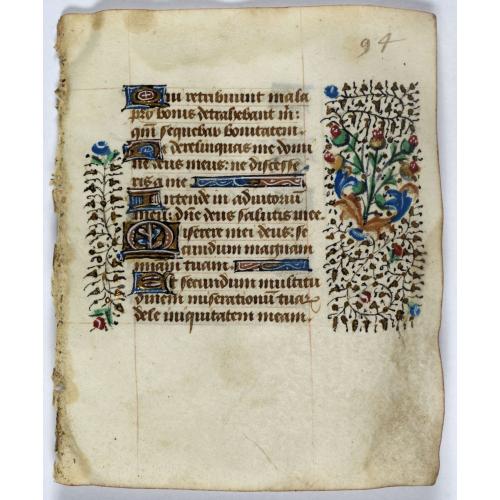 94
Qui retribuunt mala
pro bonis detrahebant m:
qm sequebar bonitatem.
Ne derelinquas me domi
ne deus meus: ne discesse
ris a me
Intende in adiutoriu
meu: dne deus salutis mee.
Miserere mei deus: se
cundum magnam
miam tuam.
Et secundum multitu
dinem miserationu tuar
dele iniquitatem meam.